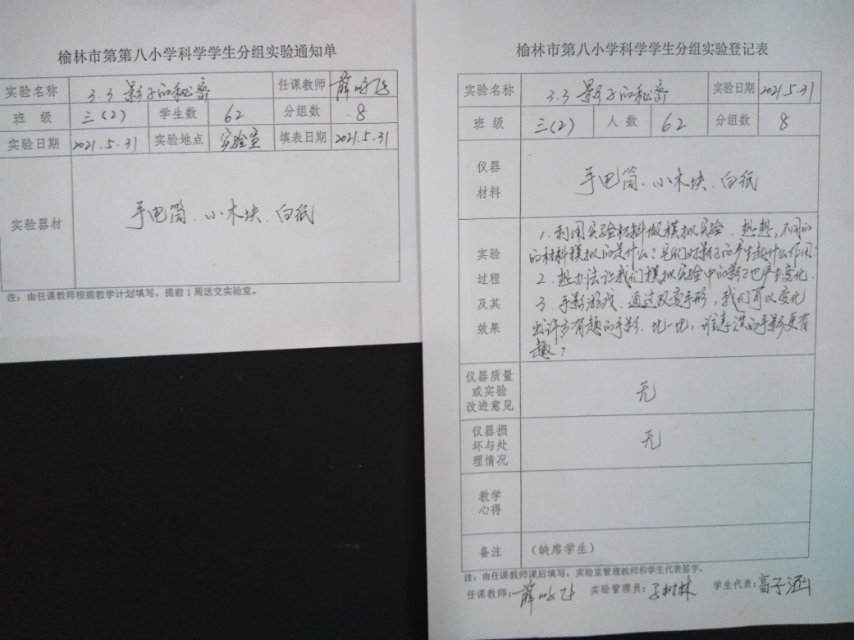 榆林市第八小学科学学生分组实验通知单
实验名称 3.3 影子的秘密 任课教师
班 级 三(2) 学生数 62 分组数 8
实验日期 2021.5.31 实验地点 实验室 填表日期 2021.5.31
实验器材 手电筒、小木块、白纸
注：由任课教师根据教学计划填写，提前1周送交实验室。
榆林市第八小学科学学生分组实验登记表
实验名称 3.3 影子的秘密 实验日期 2021.5.31
班 级 三(2) 人 数 62 分组数 8
仪器
材料
手电筒、小木块、白纸
实验
过程
及其
效果
1.利用实验材料做模拟实验.想想,不同的
的材料模拟的是什么?它们对影子的产生起什么作用?
2.想办法让我们模拟实验中的影子也产生变化.
3.手影游戏.通过改变手形,我们可以变化
出许多有趣的手影.比一比,谁表演的手影更有
趣?
仪器质量
或实验
改进意见
无
仪器损
坏与处
理情况
无
教学
心得
备注 (缺席学生)
注：由任课教师课后填写，实验室管理教师和学生代表签字。
任课教师： 实验管理员： 学生代表：高子涵